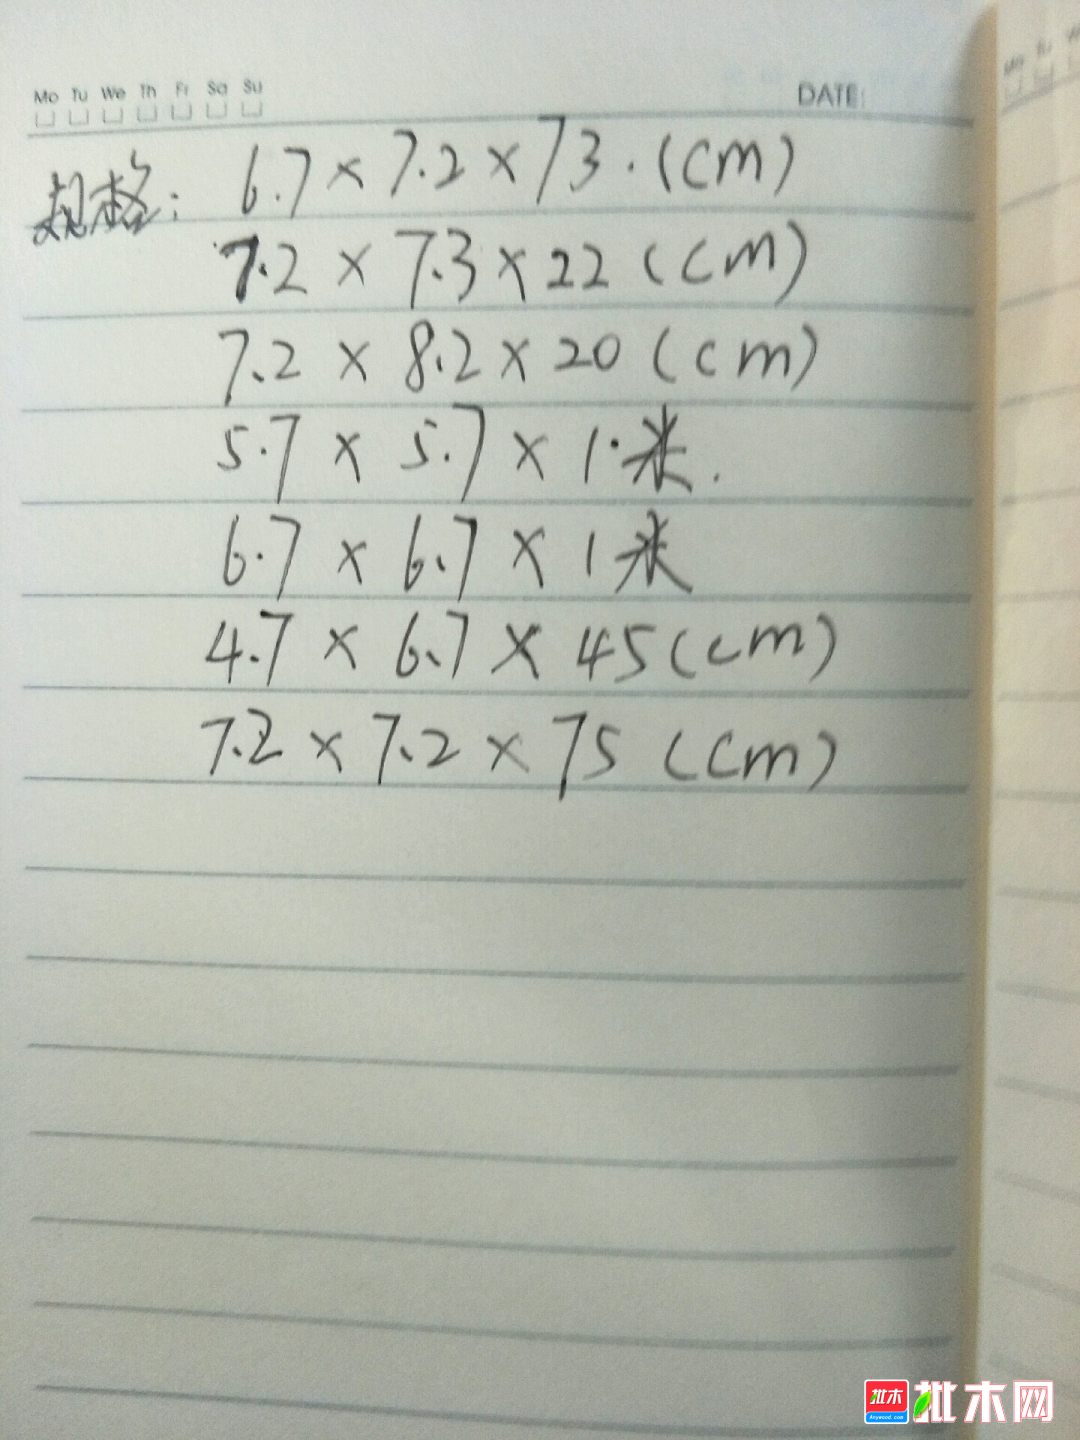 Mo Tu We Th Fr Sa Su DATE:
规格: 6.7 × 7.2 × 73. (cm)
7.2 × 7.3 × 22 (cm)
7.2 × 8.2 × 20 (cm)
5.7 × 5.7 × 1·米.
6.7 × 6.7 × 1米
4.7 × 6.7 × 45 (cm)
7.2 × 7.2 × 75 (cm)
Mo Tu
批木 Anywood.com 批木网